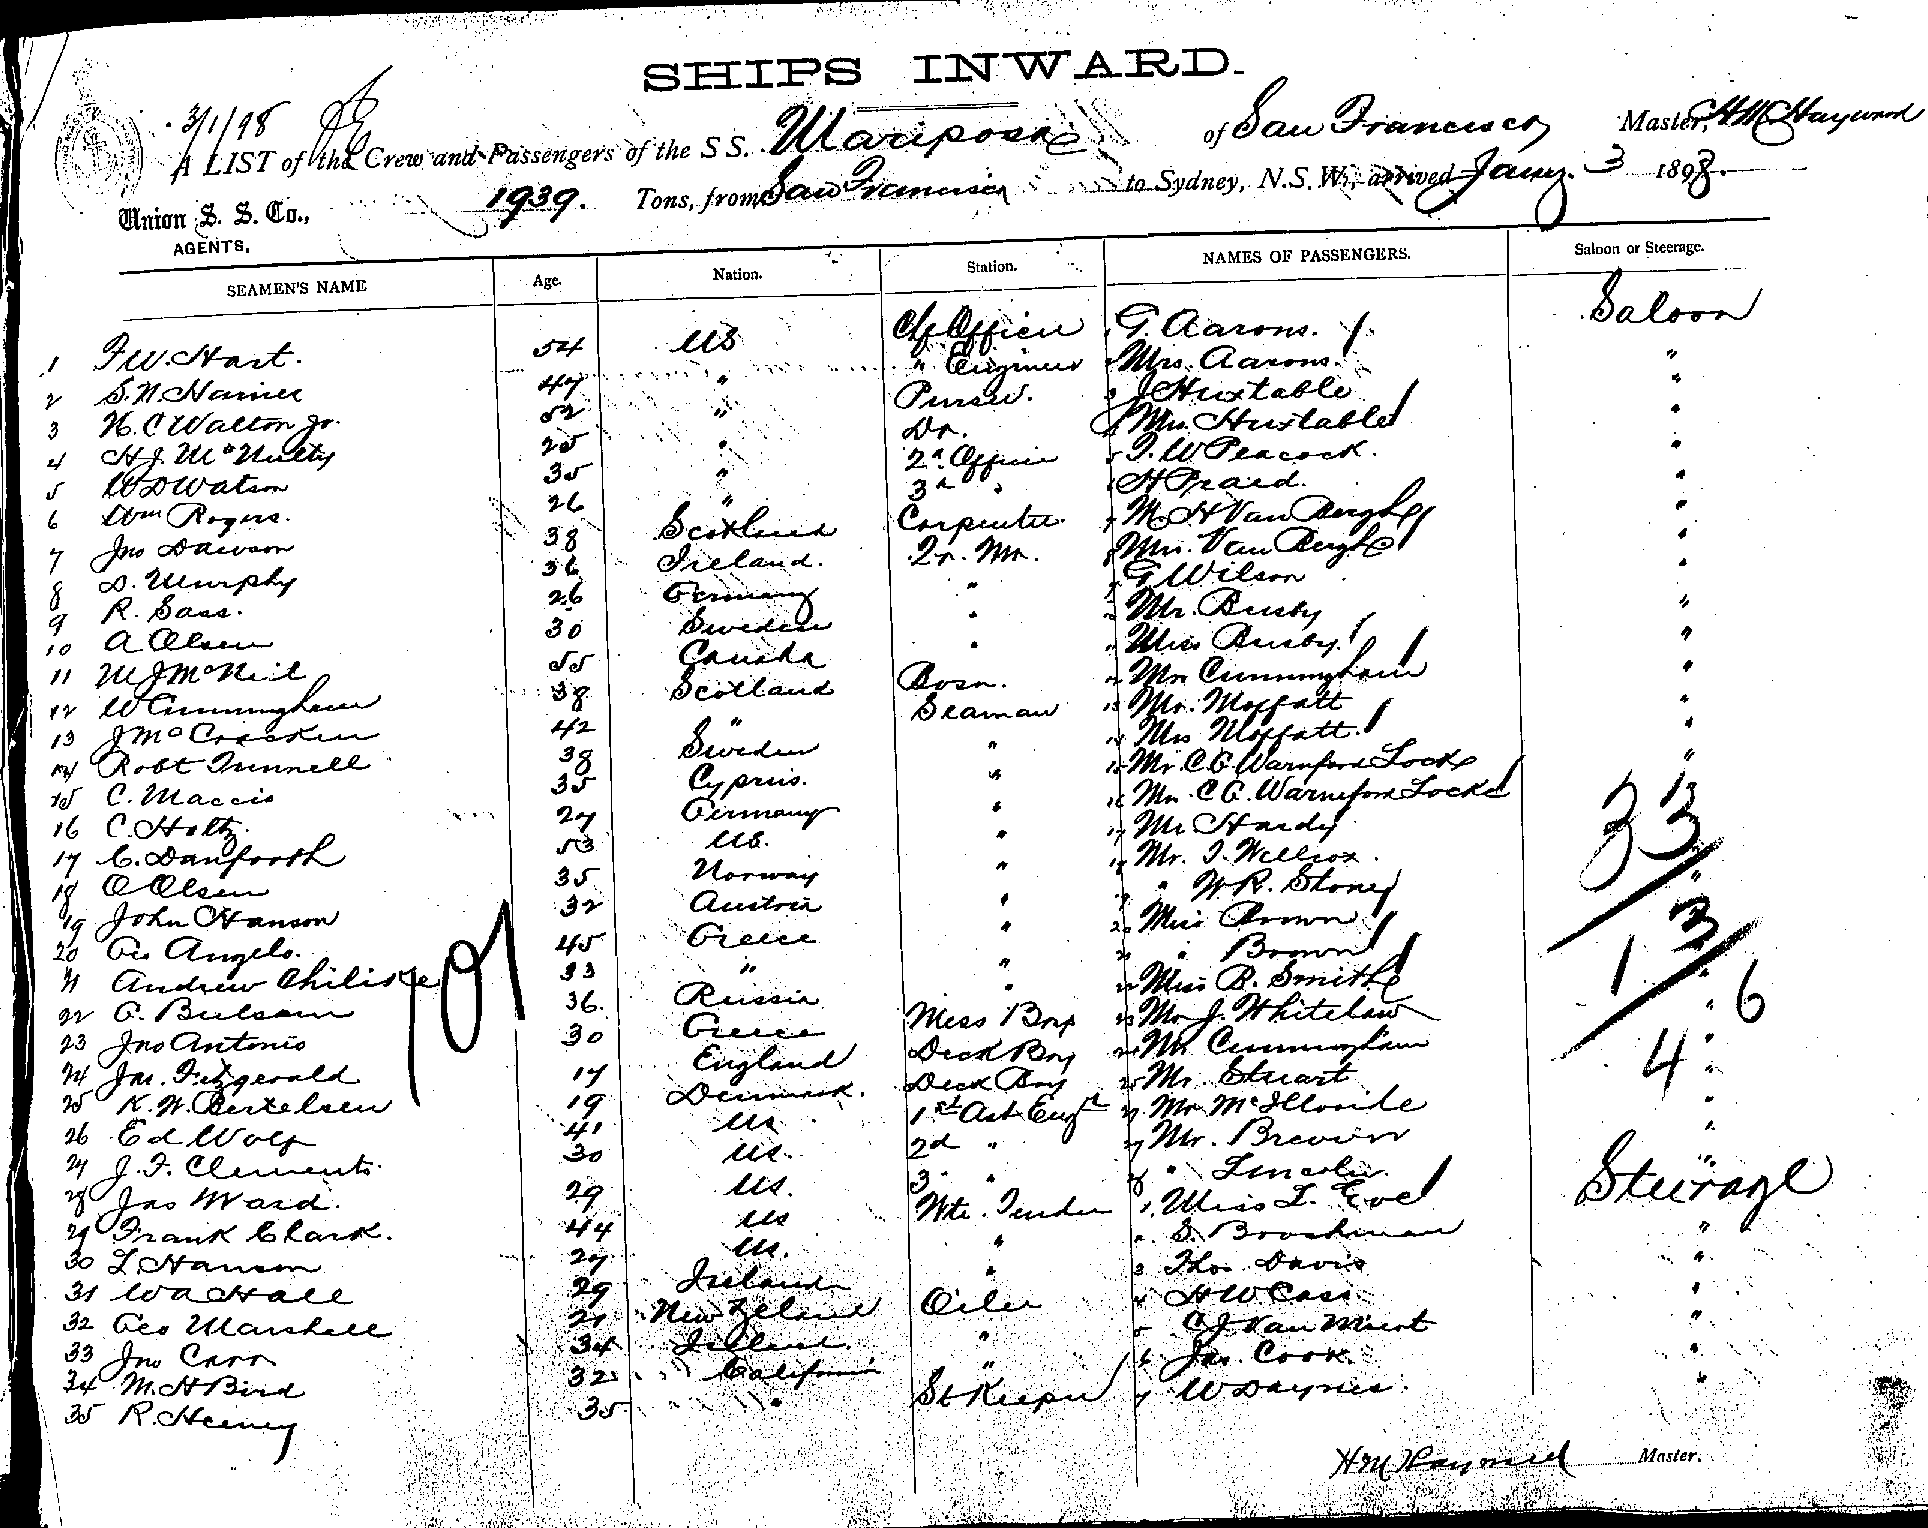 SHIPS INWARD.
3/1/98
A LIST of the Crew and Passengers of the S S. Mariposa of San Francisco Master, H M Hayward
1939. Tons, from San Francisco to Sydney, N.S.W., arrived Jany. 3 1898.
Union S. S. Co.,
AGENTS.
SEAMEN'S NAME Age. Nation. Station. NAMES OF PASSENGERS. Saloon or Steerage.
1 F W. Hart. 54 US Cf Officer 1 G. Aarons. Saloon
2 S. N. Harner 47 " " Engineer 2 Mrs. Aarons. "
3 H. C Walton Jr. 52 " Purser. 3 J Huxtable "
4 H J. McNulty 25 " Dr. 4 Mrs. Huxtable "
5 W D Watson 35 " 2d Officer 5 F. W Peacock. "
6 Wm Rogers. 26 " 3d " 6 H Praed. "
7 Jno Dawson 38 Scotland Carpenter 7 M. H Van Bergh "
8 D. Murphy 36 Ireland. Qr. Mr. 8 Mrs. Van Bergh "
9 R. Sass. 26 Germany " 9 G Wilson "
10 A Olsen 30 Sweden " 10 Mr. Busby "
11 W J McNeil 55 Canada " 11 Miss Busby "
12 W Cunningham 38 Scotland Bosn. 12 Mrs Cunningham "
13 J McCracken 42 " Seaman 13 Mr. Moffatt "
14 Robt Tunnell 38 Sweden " 14 Mrs Moffatt "
15 C. Maccis 35 Cyprus. " 15 Mr. C. G. Warneford Lock "
16 C. Holtz. 27 Germany " 16 Mrs. C G. Warneford Lock 33
17 C. Danforth 53 US. " 17 Mr Hardy
18 O Olsen 35 Norway " 18 Mr. J. Wellcox.
19 John Hanson 32 Austria " 19 " W R. Stoney "
20 Geo Angelo. 45 Greece " 20 Miss Brown 13
21 Andrew Chiliske 33 " " 21 " Brown "
22 G. Bulsam 36. Russia " 22 Miss B. Smith 6
23 Jno Antonio 30 Greece Mess Boy 23 Mr J. Whitelaw "
24 Jas. Fitzgerald 17 England Deck Boy 24 Mr Cunningham 4
25 K. W. Bertelsen 19 Denmark. Deck Boy 25 Mr. Stuart "
26 Ed Wolf 41 US 1st Ast Engr Mr. "
27 J. F. Clements. 30 US. 2d " 27 Mr. Brown "
28 Jas Ward. 29 US. 3. " 28 " Lincoln. "
29 Frank Clark. 44 US Wtr. Tender 1. Miss L. Eve Steerage
30 L Hanson 27 US. " 2. S. Brooshman "
31 W A Hall 29 Ireland " 3 Thos Davis "
32 Geo Marshall 21 New Zeland Oiler 4 H W Cass "
33 Jno Carr 34 Ireland. " 5 C J Van Miert "
34 M. H Bird 32 California " 6 Jas. Cook. "
35 R. Heeney 35 " St Keeper 7 W Daynes. "
H M Hayward Master.